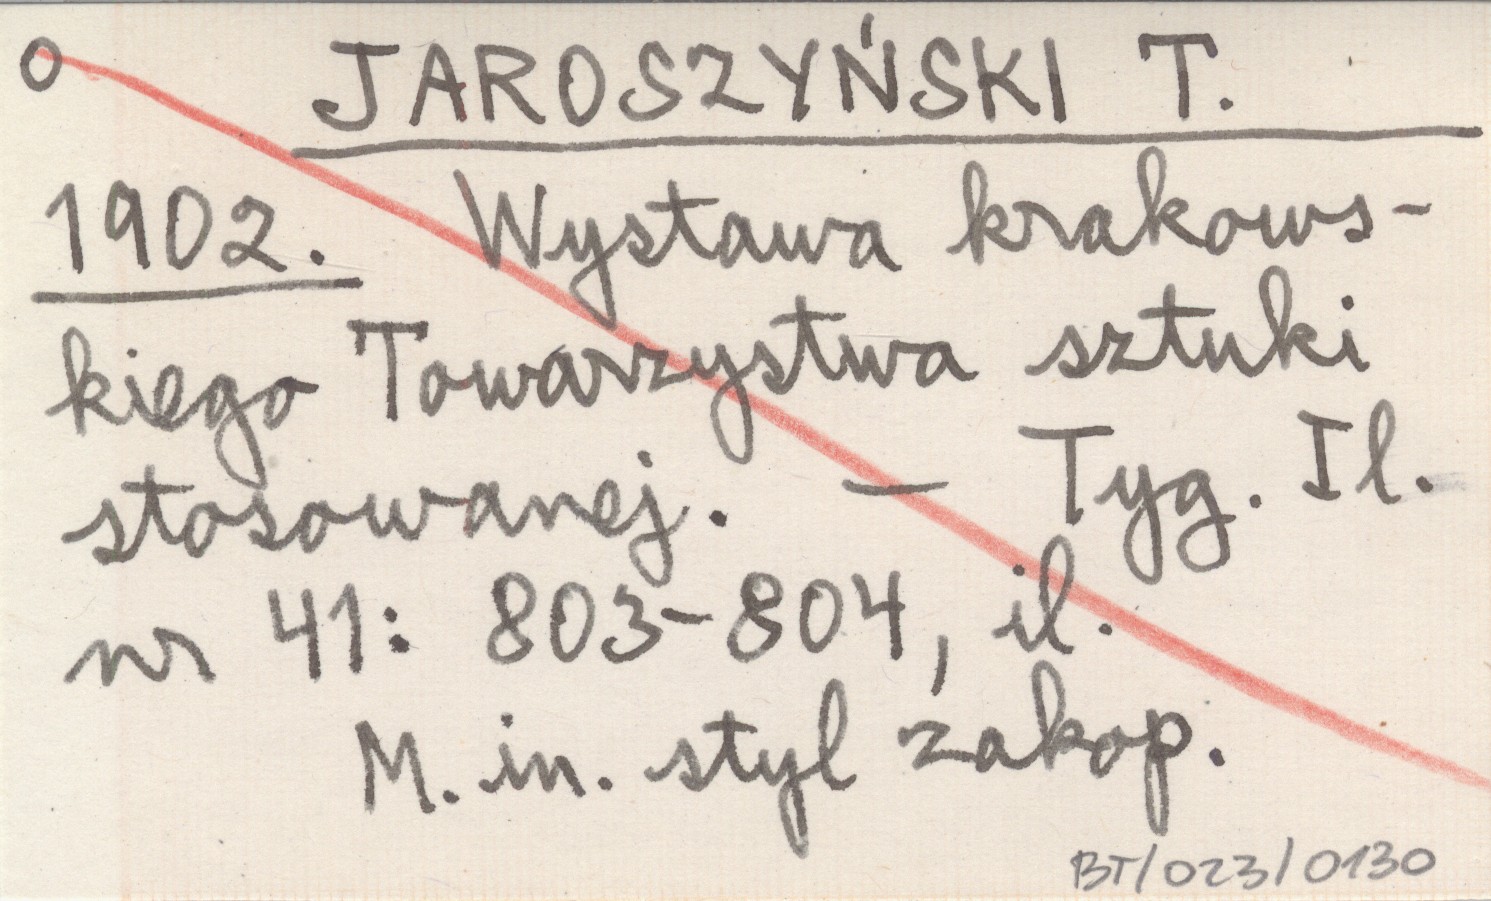 O JAROSZYŃSKI T.
1902. Wystawa krakows-
kiego Towarzystwa sztuki
stosowanej. — Tyg. Il.
nr 41: 803-804, il.
M. in. styl zakop.
BT/023/0130